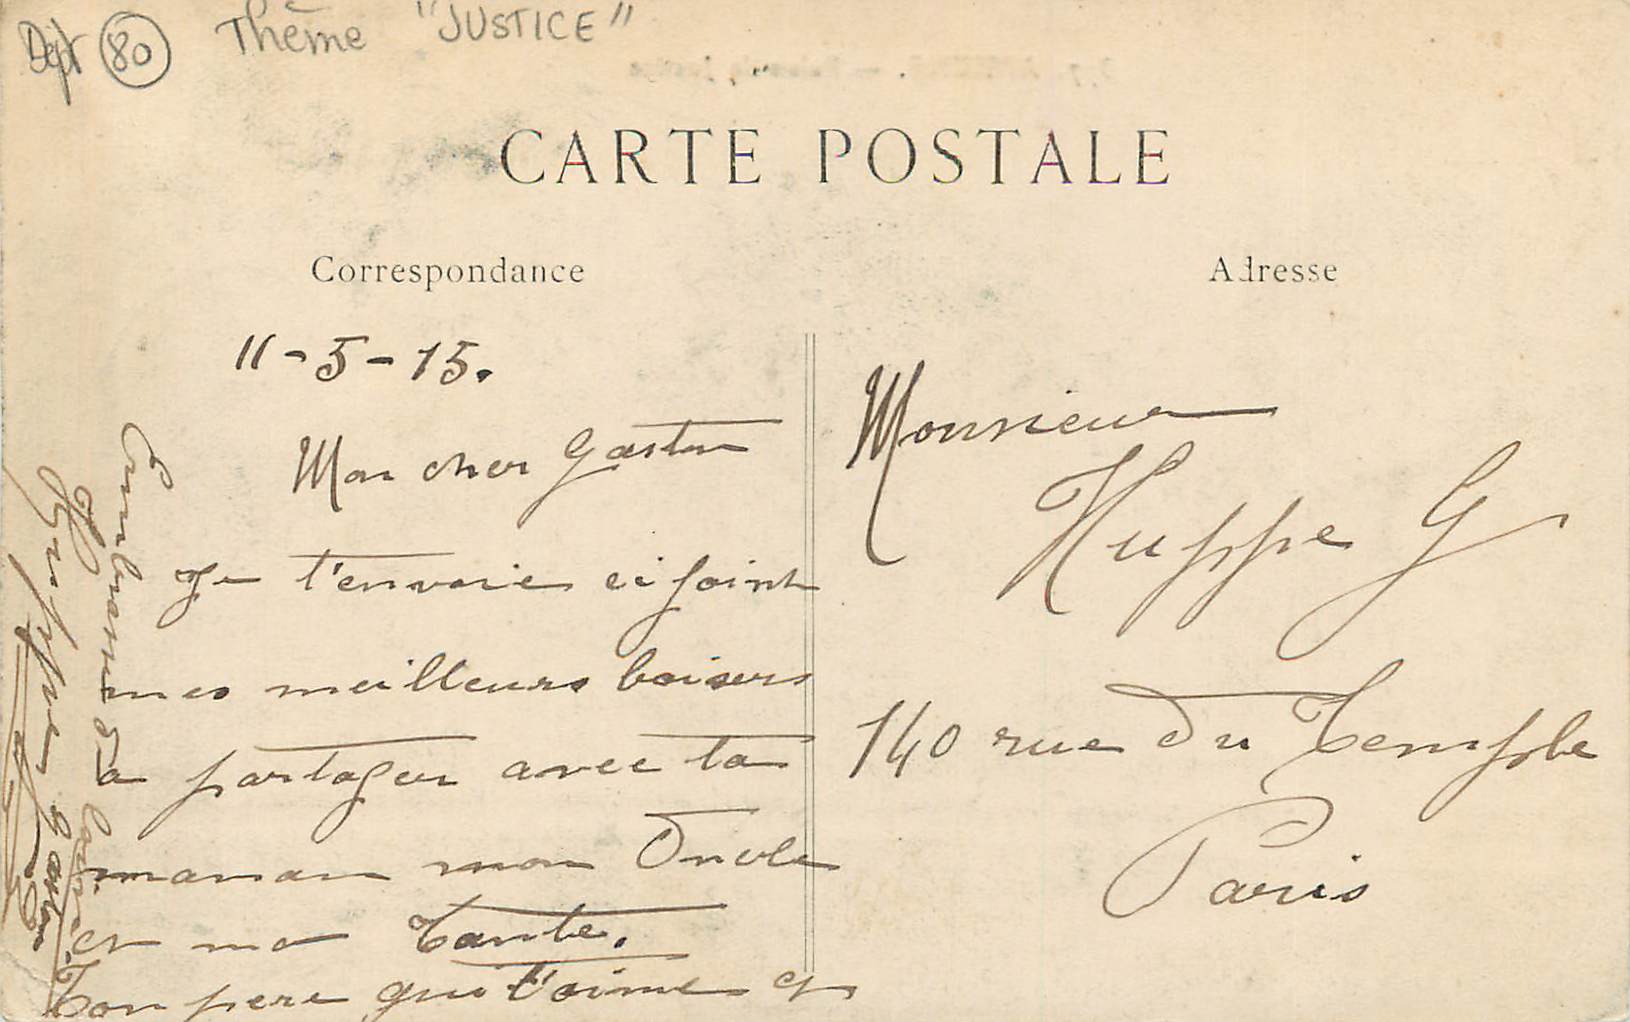 Dept 80 Thème "JUSTICE"
CARTE POSTALE
Correspondance
Adresse
11-5-15.
Mon cher Gaston
Je t'envoie ci joint
mes meilleurs baisers
a partager avec ta
maman mon Oncle
et ma Tante.
Ton père qui t'aime et
Monsieur
Huppe G
140 rue du Temple
Paris